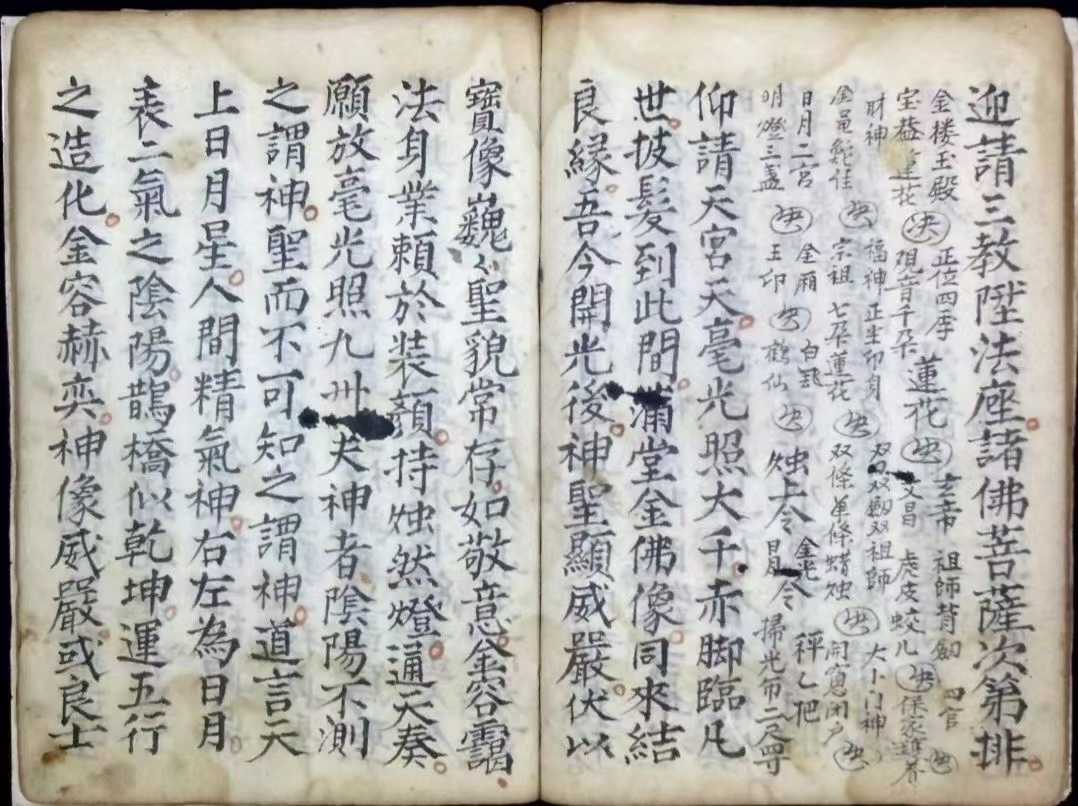 迎請三教陞法座諸佛菩薩次第排
金楼玉殿 正位四序 玄帝 祖師背劍 四官
宝盖蓮花 觀音千朵 蓮花 文昌 虎皮蛟儿 保家
財神 福神正生印身 双双劍双祖師 大小门神
宗祖 七朵蓮花 双條单條蜡烛 闭户
日月二宮 金厢 白 金光 秤乙把
明燈三盏 玉印 鶴仙 烛上令 令 掃光布二尺
仰請天宮天毫光照大千赤脚臨凡
世披髮到此間滿堂金佛像同來結
良緣吾今開光後神聖顯威嚴伏以
寶像巍々聖貌常存如敬意金容靄
法身業賴於装顏持烛然燈通天奏
願放毫光照九州夫神者陰陽不測
之謂神聖而不可知之謂神道言天
上日月星人間精氣神右左為日月
表二氣之陰陽鵲橋似乾坤運五行
之造化金容赫奕神像威嚴或良士